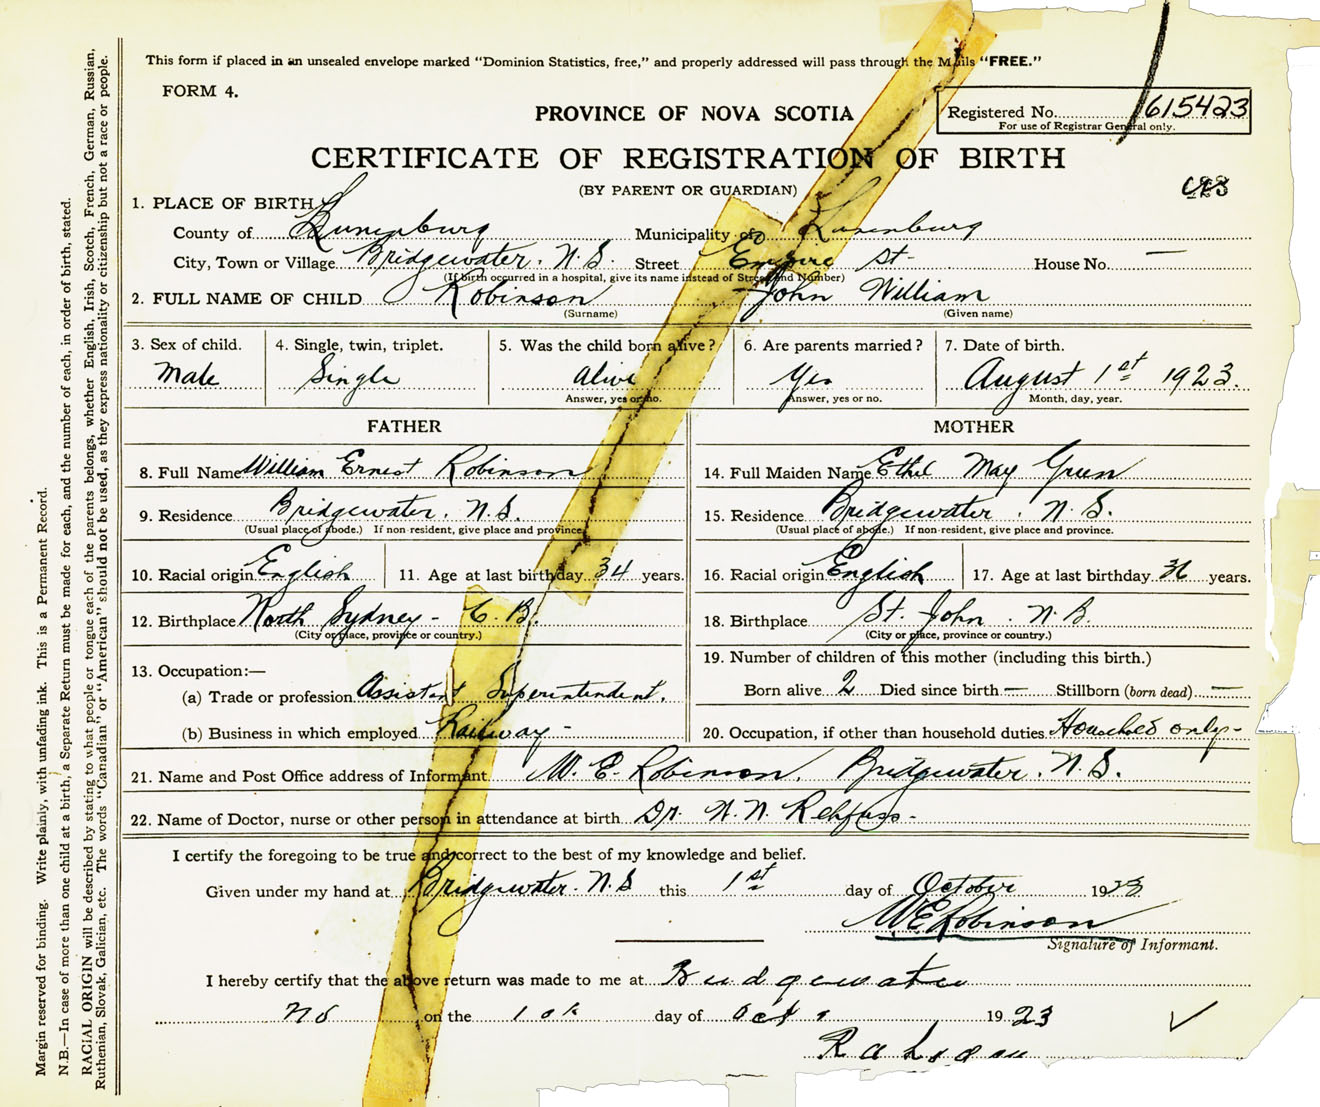 This form if placed in an unsealed envelope marked "Dominion Statistics, free," and properly addressed will pass through the Mails "FREE."
FORM 4.
PROVINCE OF NOVA SCOTIA
Registered No. 615423
For use of Registrar General only.
CERTIFICATE OF REGISTRATION OF BIRTH
(BY PARENT OR GUARDIAN)
1. PLACE OF BIRTH
County of Lunenburg Municipality of Lunenburg
City, Town or Village Bridgewater. N.S. Street Empire St- House No. —
(If birth occurred in a hospital, give its name instead of Street and Number)
2. FULL NAME OF CHILD Robinson John William
(Surname) (Given name)
3. Sex of child. 4. Single, twin, triplet. 5. Was the child born alive? 6. Are parents married? 7. Date of birth.
Male Single Alive Yes August 1st 1923.
Answer, yes or no. Answer, yes or no. Month, day, year.
FATHER MOTHER
8. Full Name William Ernest Robinson 14. Full Maiden Name Ethel May Green
9. Residence Bridgewater. N.S. 15. Residence Bridgewater. N.S.
(Usual place of abode.) If non-resident, give place and province. (Usual place of abode.) If non-resident, give place and province.
10. Racial origin English 11. Age at last birthday 34 years. 16. Racial origin English 17. Age at last birthday years.
12. Birthplace North Sydney - C.B. 18. Birthplace St. John. N.B.
(City or place, province or country.) (City or place, province or country.)
13. Occupation:— 19. Number of children of this mother (including this birth.)
(a) Trade or profession Assistant Superintendent. Born alive 2 Died since birth — Stillborn (born dead) —
(b) Business in which employed Railway - 20. Occupation, if other than household duties Household only-
21. Name and Post Office address of Informant W. E. Robinson. Bridgewater. N.S.
22. Name of Doctor, nurse or other person in attendance at birth Dr. Rehfuss-
I certify the foregoing to be true and correct to the best of my knowledge and belief.
Given under my hand at Bridgewater. N.S this 1st day of October 1923
W E Robinson
Signature of Informant.
I hereby certify that the above return was made to me at Bridgewater
NS on the day of Oct 1923
Margin reserved for binding. Write plainly, with unfading ink. This is a Permanent Record.
N.B.—In case of more than one child at a birth, a Separate Return must be made for each, and the number of each, in order of birth, stated.
RACIAL ORIGIN will be described by stating to what people or tongue each of the parents belongs, whether English, Irish, Scotch, French, German, Russian,
Ruthenian, Slovak, Galician, etc. The words "Canadian" or "American" should not be used, as they express nationality or citizenship but not a race or people.